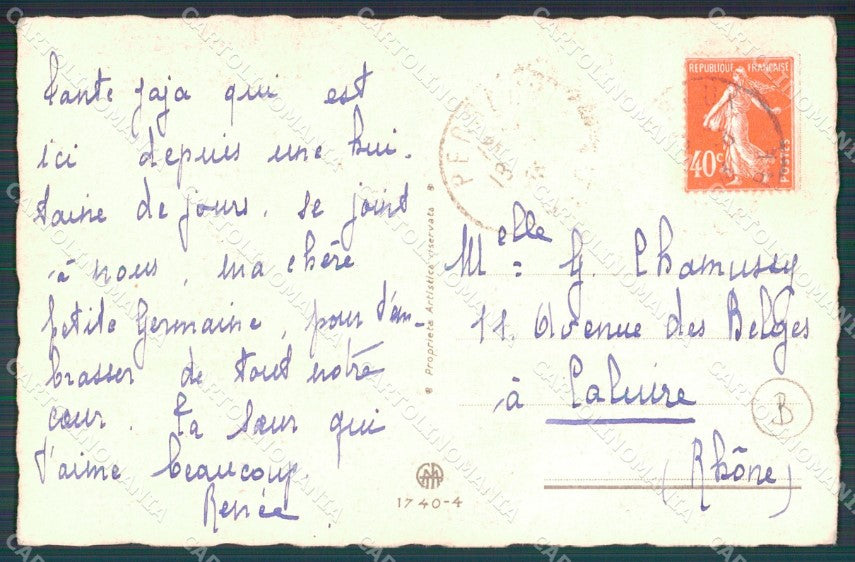 Tante Jaja qui est
ici depuis une hui-
taine de jours, se joint
à nous, ma chère
petite Germaine, pour t'em-
brasser de tout notre
cœur. Ta Sœur qui
t'aime beaucoup.
Renée
Proprietà Artistica riservata
1740-4
REPUBLIQUE FRANÇAISE
40c
POSTES
Melle G. Chamussy
11. Avenue des Belges
à Caluire
(Rhône)
B
CARTOLINOMANIA